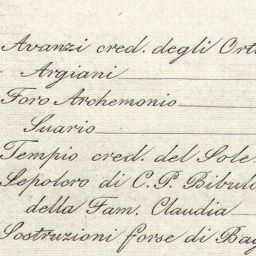 Avanzi cred. degli Ort
Argiani
Foro Archemonio
Suario
Tempio cred. del Sole
Sepolcro di C. P. Bibulo
della Fam. Claudia
Sostruzioni forse di Bag